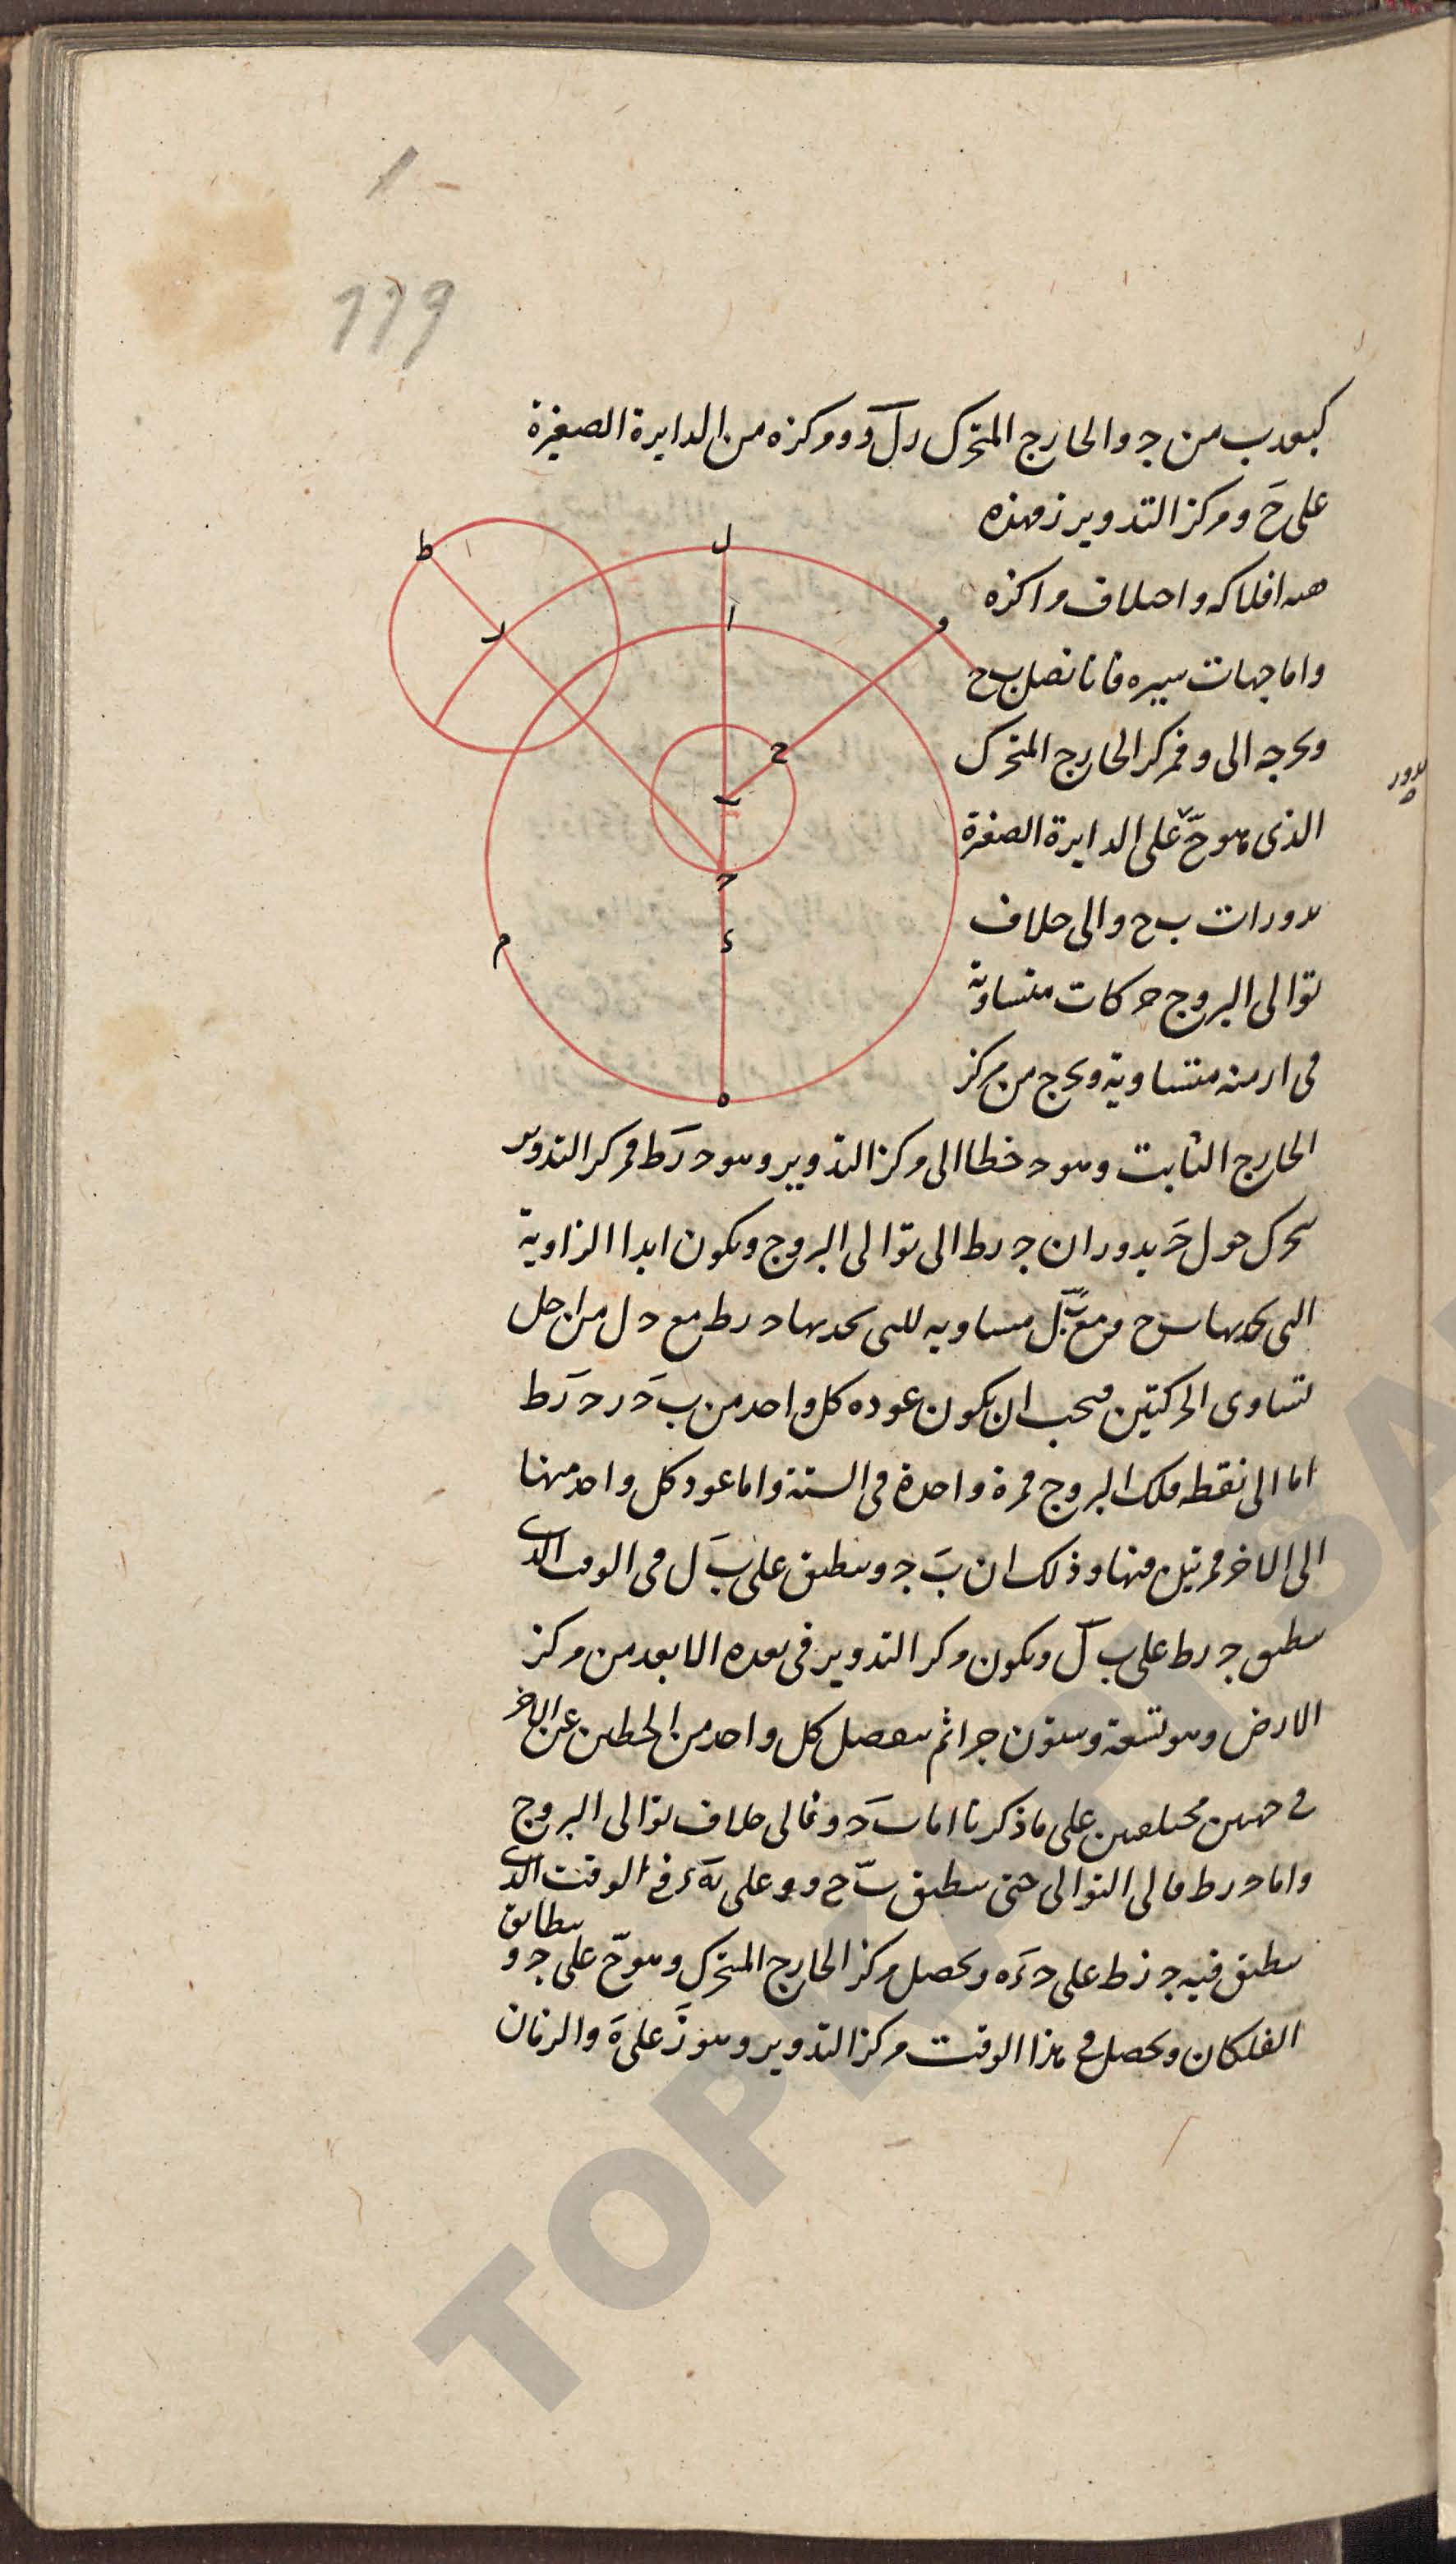 119
كبعد ب من ج والخارج المتحرك ر ل و ومركزه من الدايرة الصغيرة
على ح ومركز التدوير ز فهذه
هيه افلاكه واختلاف مراكزه
واما جهات سيره فانا نصل ب ح
ونخرجه الى و فمركز الخارج المتحرك
الذى هو ح على الدايرة الصغيرة
بدورات ب ح و الى خلاف
توالى البروج حركات متساوية
فى ازمنه متساوية ونخرج من مركز
الخارج الثابت وهو ح خطا الى مركز التدوير وهو ح ر ط فمركز التدوير
يتحرك حول ح بدوران ج ر ط الى توالى البروج ويكون ابدا الزاوية
التى يحدها ب ح و مع ب ل مساويه للتى يحدها ح ر ط مع ح ل من اجل
تساوى الحركتين فيجب ان يكون عوده كل واحد من ب ح و ح ر ط
اما الى نقطه فلك البروج فمرة واحدة فى السنة واما عود كل واحد منها
الى الاخر فمرتين منها وذلك ان ب ج و ينطبق على ب ل فى الوقت الذى
ينطبق ج ر ط على ب ل ويكون مركز التدوير فى بعده الابعد من مركز
الارض وهو تسعة وستون جزا ثم ينفصل كل واحد من الخطين عن الاخر
فى جهتين مختلفتين على ما ذكرنا اما ب ح و فالى خلاف توالى البروج
واما ح ر ط فالى التوالى حتى ينطبق ب ح و و على به ء فى الوقت الذى
ينطبق فيه ج ز ط على ح ء ه ويحصل مركز الخارج المتحرك وهو ح على ج و يتطابق
الفلكان ويحصل فى هذا الوقت مركز التدوير وهو ز على ه والزمان
بدور
ط
ل
ا
و
ر
ح
ب
ح
ء
م
ه